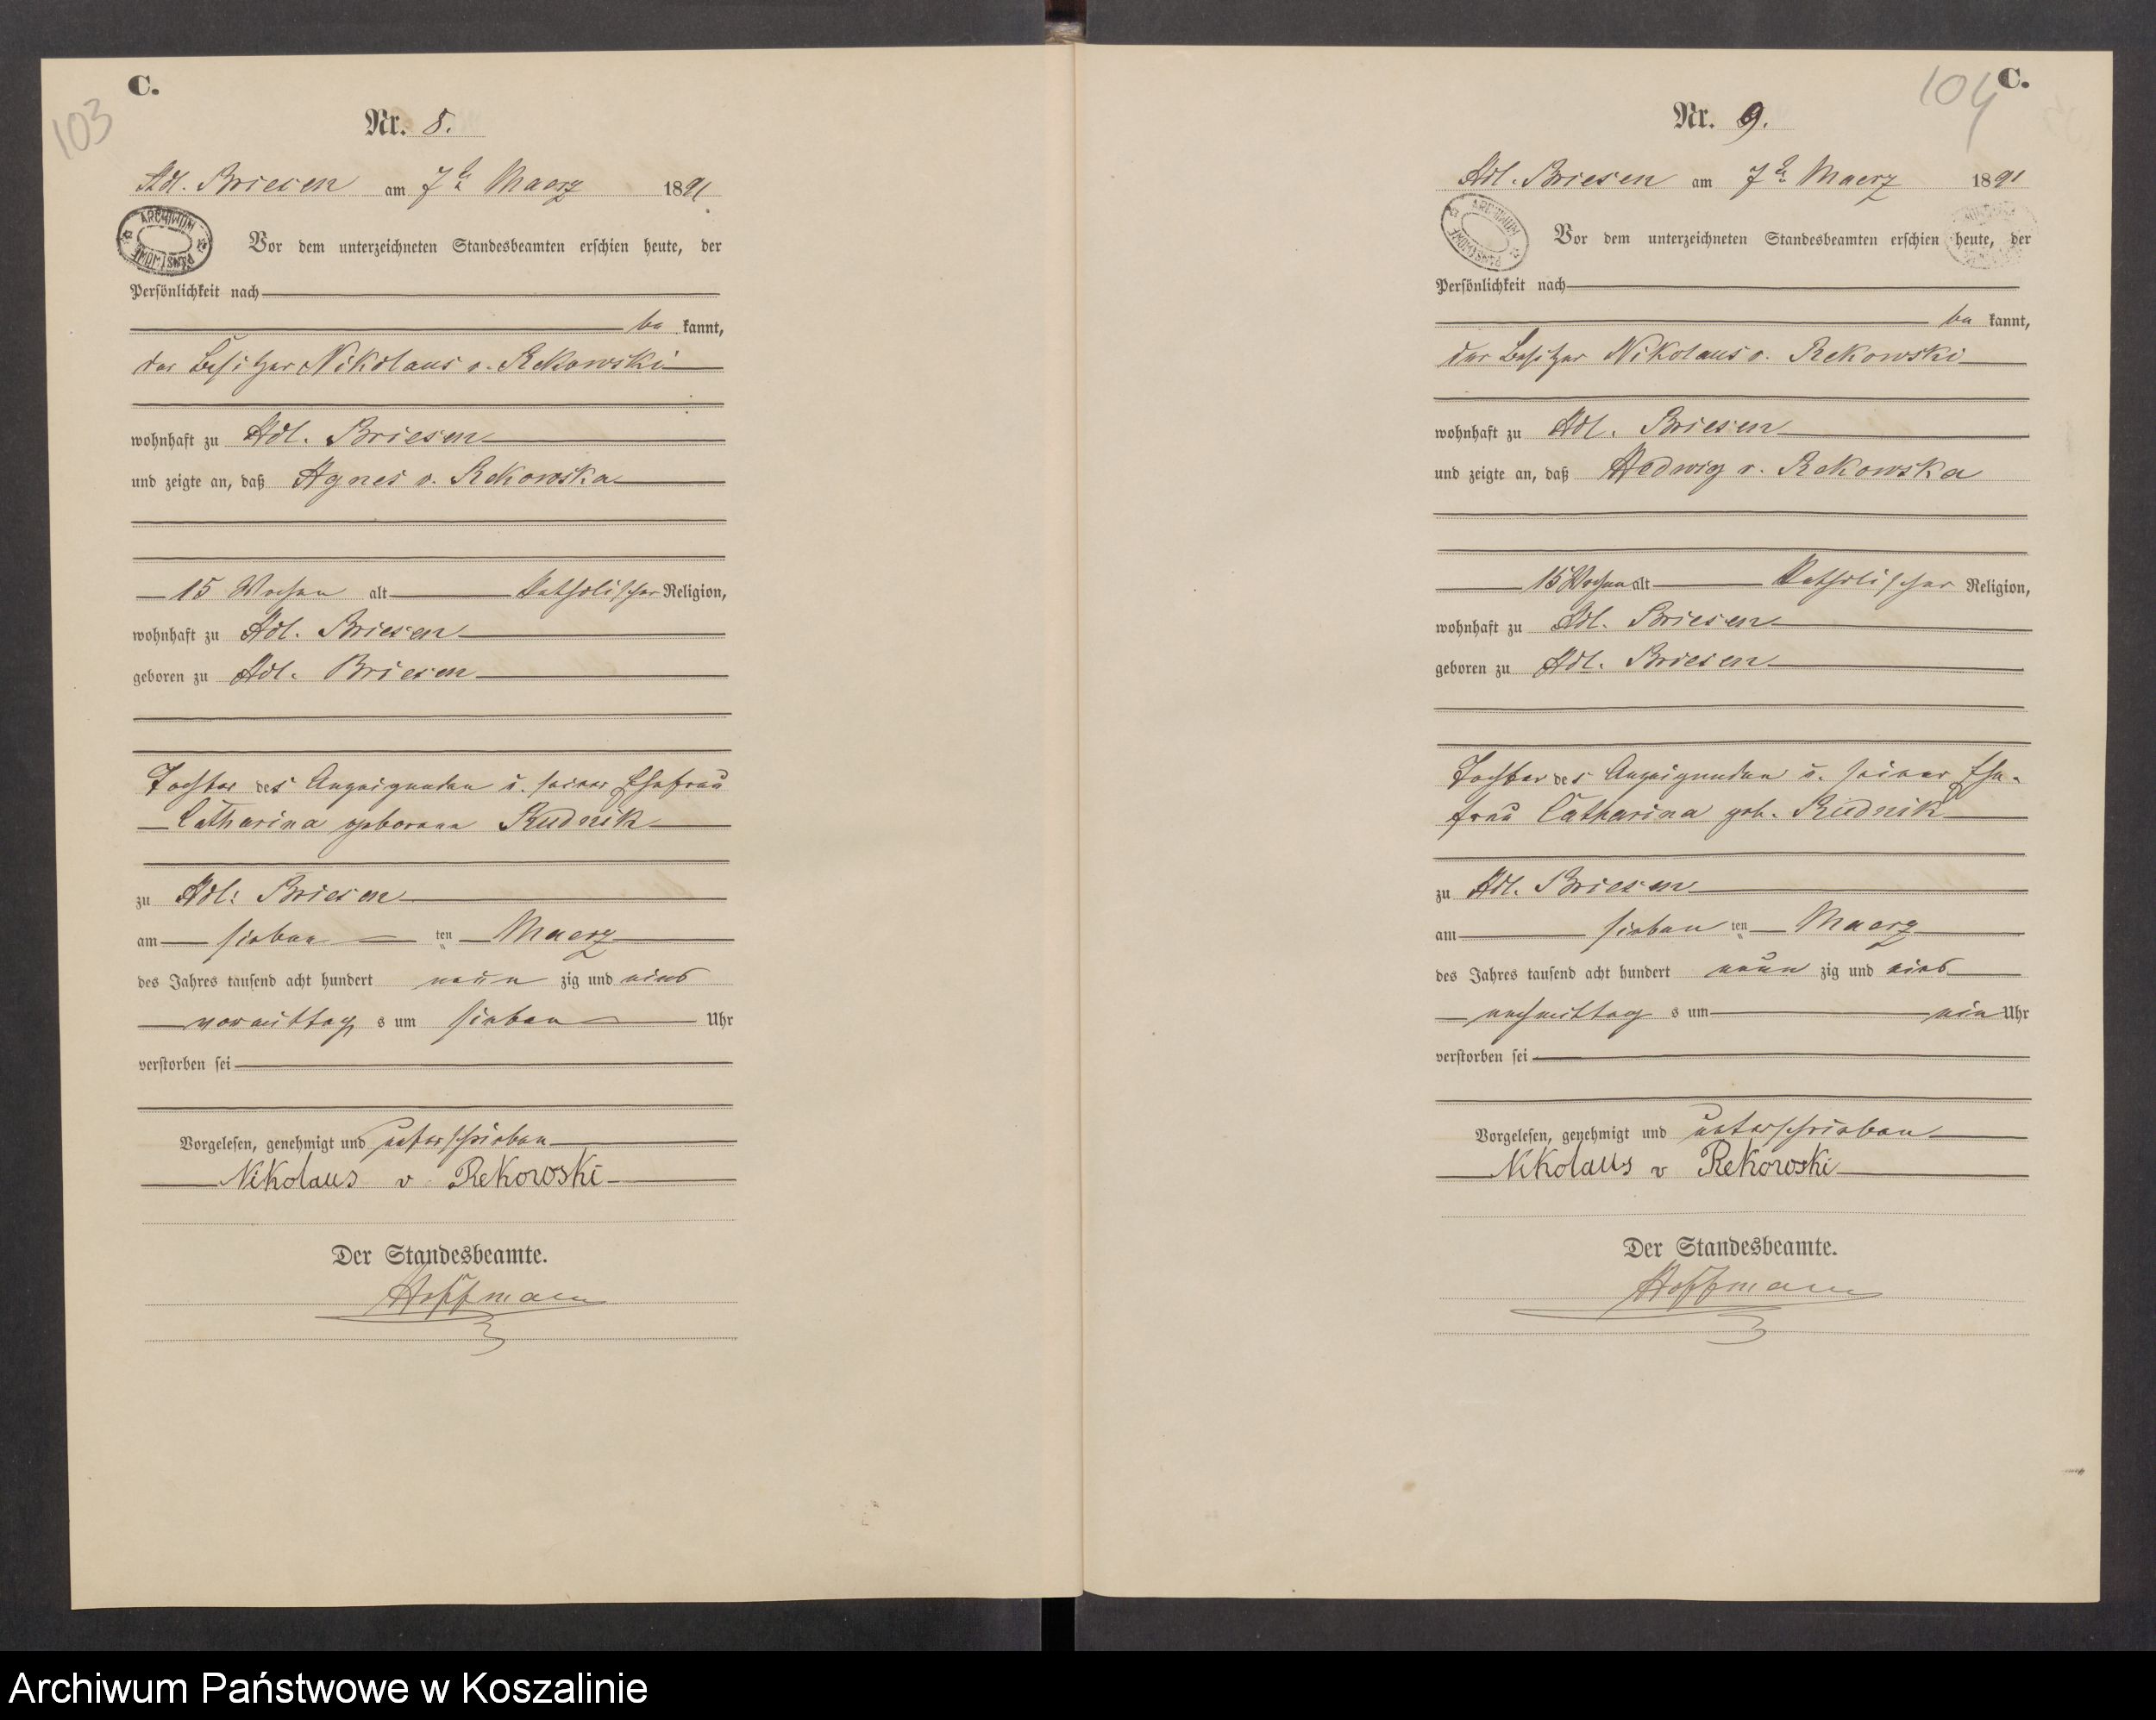 C.
103
Nr. 8.
Adl. Briesen am 7ten Maerz 1891
ARCHIWUM PAŃSTWOWE
Vor dem unterzeichneten Standesbeamten erschien heute, der
Persönlichkeit nach
be kannt,
der Besitzer Nikolaus v. Rekowski
wohnhaft zu Adl. Briesen
und zeigte an, daß Agnes v. Rekowska
15 Wochen alt katholischer Religion,
wohnhaft zu Adl. Briesen
geboren zu Adl. Briesen
Tochter des Anzeigenden u. seiner Ehefrau
Catharina geborene Rudnik
zu Adl. Briesen
am sieben ten Maerz
des Jahres tausend acht hundert neun zig und eins
vormittag s um sieben Uhr
verstorben sei
Vorgelesen, genehmigt und unterschrieben
Nikolaus v Rekowski
Der Standesbeamte.
Hoffmann
104
C.
Nr. 9.
Adl. Briesen am 7ten Maerz 1891
ARCHIWUM PAŃSTWOWE
Vor dem unterzeichneten Standesbeamten erschien heute, der
Persönlichkeit nach
be kannt,
der Besitzer Nikolaus v. Rekowski
wohnhaft zu Adl. Briesen
und zeigte an, daß Hedwig v. Rekowska
15 Wochen alt katholischer Religion,
wohnhaft zu Adl. Briesen
geboren zu Adl. Briesen
Tochter des Anzeigenden u. seiner Ehe-
frau Catharina geb. Rudnik
zu Adl. Briesen
am sieben ten Maerz
des Jahres tausend acht hundert neun zig und eins
nachmittag s um ein Uhr
verstorben sei
Vorgelesen, genehmigt und unterschrieben
Nikolaus v Rekowski
Der Standesbeamte.
Hoffmann
Archiwum Państwowe w Koszalinie